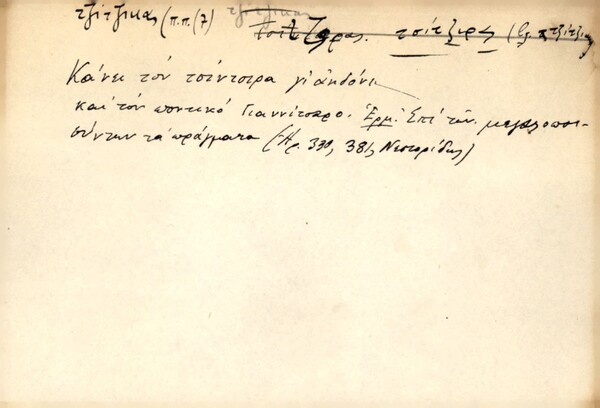 τζίτζικας (π.π. (7) τζίτζικας
τσίτζιρας (βλ. τζίτζικας
Κάνει τὸν τσίντσιρα γι' ἀηδόνι
καὶ τὸν ποντικὸ Γιαννίτσαρο. Ἑρμ. Ἐπὶ τῶν μεγαλοποι-
ούντων τὰ πράγματα (Ἠρ. 330, 381, Νεστορίδης)